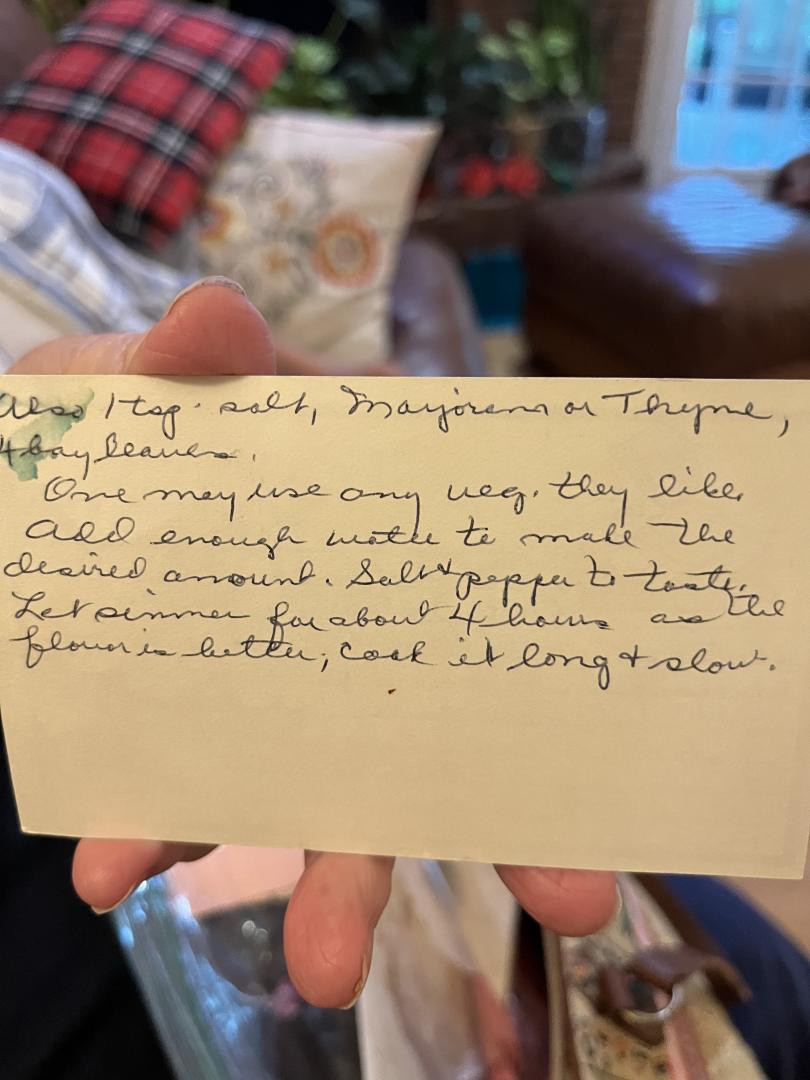 Also 1 tsp. salt, Marjoram or Thyme,
4 bay leaves.
One may use any veg. they like.
Add enough water to make the
desired amount. Salt & pepper to taste.
Let simmer for about 4 hours as the
flavor is better, cook it long & slow.